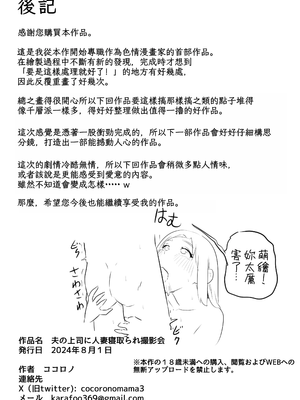 後記
感謝您購買本作品。
這是我從本作開始專職作為色情漫畫家的首部作品。
在繪製過程中不斷有新的發現，完成時才想到
「要是這樣處理就好了！」的地方有好幾處，
因此反覆重畫了好幾次。
總之畫得很開心所以下回作品要這樣搞那樣搞之類的點子堆得
像千層派一樣多，得好好整理做出值得一擼的好作品。
這次感覺是憑著一股衝勁完成的，所以下一部作品會好好仔細構思
分鏡，打造出一部能撼動人心的作品。
這次的劇情冷酷無情，所以下回作品會稍微多點人情味，
或者該說是更能感受到愛意的內容。
雖然不知道會變成怎樣…… w
那麼，希望您今後也能繼續享受我的作品。
はむ
萌繪！
妳太厲
害了…
さわさわ
作品名　夫の上司に人妻寝取られ撮影会
発行日　2024年8月1日
※本作の１８歳未満への購入、閲覧およびWEBへの
無断アップロードを禁止します。
作者　ココロノ
連絡先
X（旧twitter）：cocoronomama3
メール　karafoo369@gmail.com